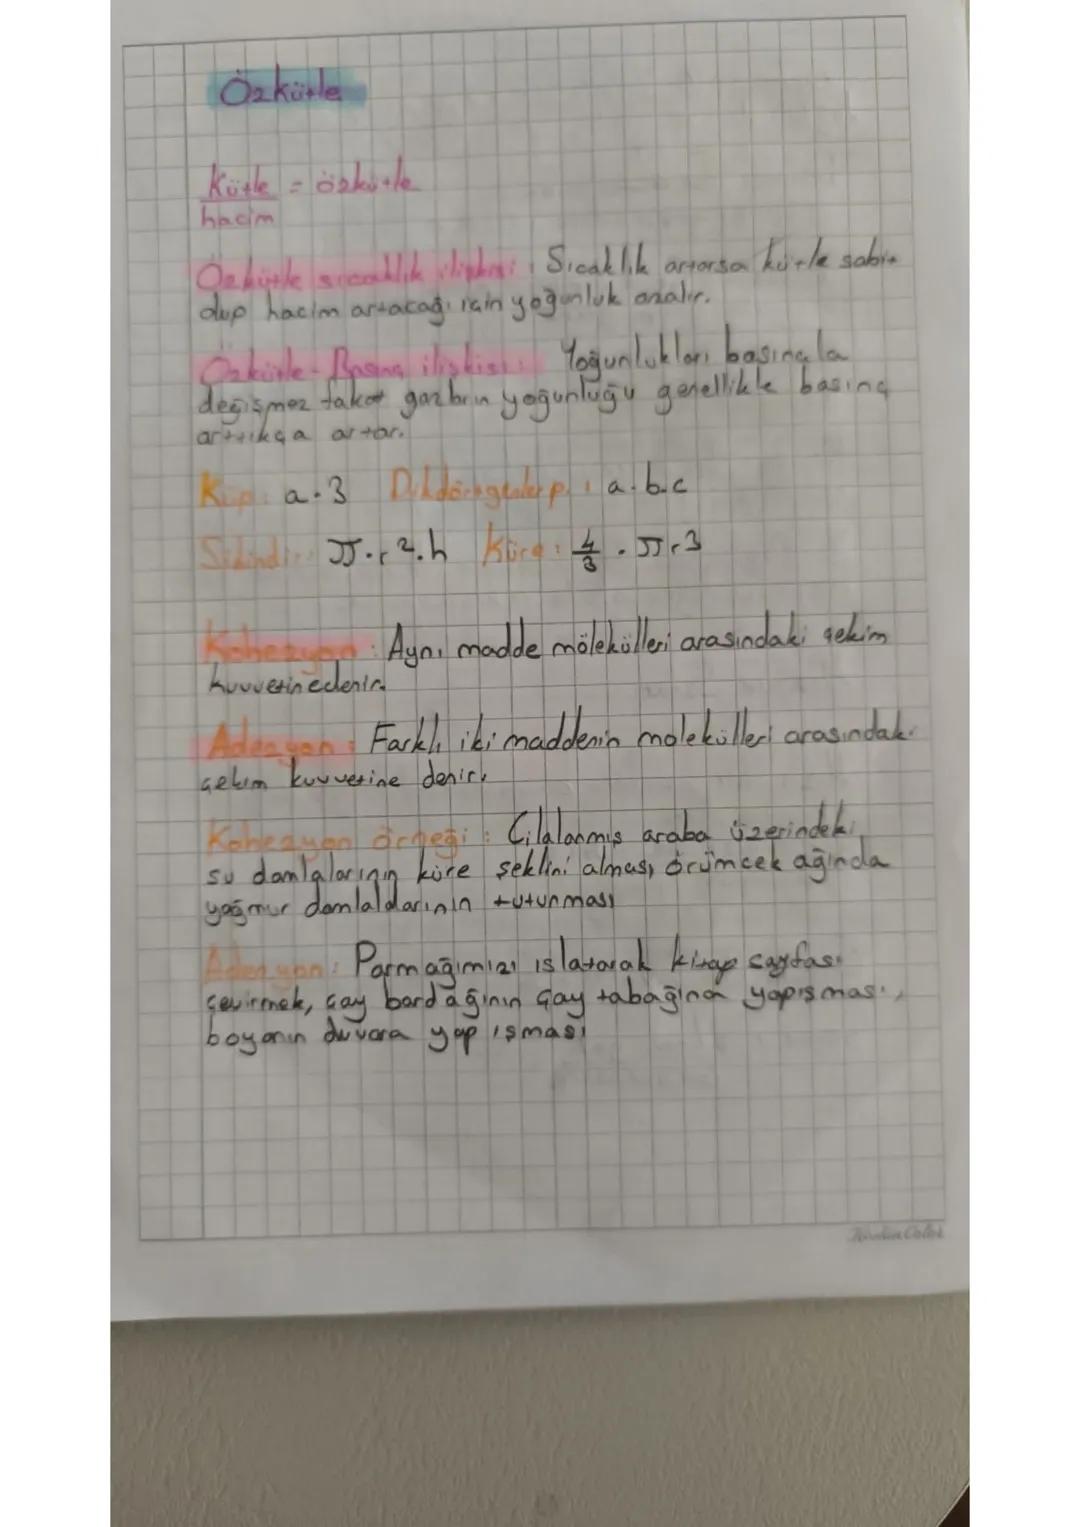 Özkütle
Kütle = özkütle
hacim
Özkütle sıcaklık ilişkisi: Sıcaklık artarsa kütle sabit
olup hacim artacağı için yoğunluk azalır.
Özkütle-Basınç ilişkisi: Yoğunlukları basınçla
değişmez fakat gazların yoğunluğu genellikle basınç
arttıkça artar.
Küp: a.3 Dikdörtgenler p.: a.b.c
Silindir: π.r².h Küre: 4/3 . πr3
Kohezyon: Aynı madde mölekülleri arasındaki çekim
kuvvetinedenir.
Adezyon: Farklı iki maddenin molekülleri arasındaki
çekim kuvvetine denir.
Kohezyon örneği: Cilalanmış araba üzerindeki
su damlalarının küre şeklini alması, örümcek ağında
yağmur damlaldarının tutunması
Adezyon: Parmağımızı ıslatarak kitap sayfası
çevirmek, çay bardağının çay tabağına yapışması,
boyanın duvara yapışması